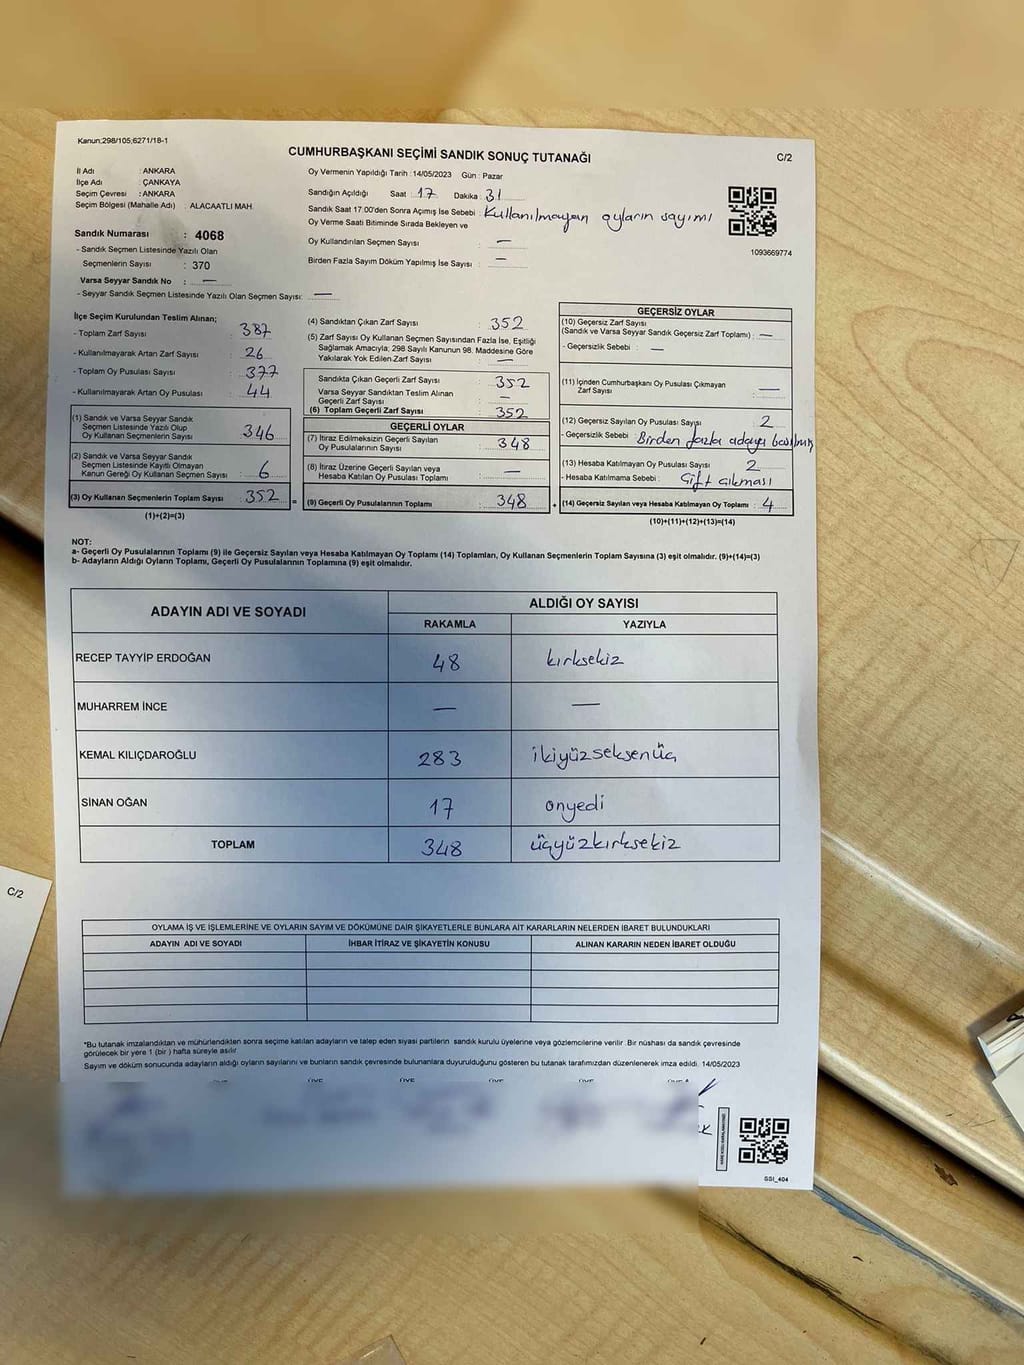 Kanun;298/105;6271/18-1
CUMHURBAŞKANI SEÇİMİ SANDIK SONUÇ TUTANAĞI
C/2
İl Adı : ANKARA
İlçe Adı : ÇANKAYA
Seçim Çevresi : ANKARA
Seçim Bölgesi (Mahalle Adı) : ALACAATLI MAH.
Sandık Numarası : 4068
- Sandık Seçmen Listesinde Yazılı Olan
Seçmenlerin Sayısı : 370
Varsa Seyyar Sandık No : —
- Seyyar Sandık Seçmen Listesinde Yazılı Olan Seçmen Sayısı: —
Oy Vermenin Yapıldığı Tarih : 14/05/2023 Gün : Pazar
Sandığın Açıldığı Saat : 17 Dakika : 31
Sandık Saat 17:00'den Sonra Açımış İse Sebebi : Kullanılmayan oyların sayımı
Oy Verme Saati Bitiminde Sırada Bekleyen ve
Oy Kullandırılan Seçmen Sayısı : —
Birden Fazla Sayım Döküm Yapılmış İse Sayısı : —
1093669774
İlçe Seçim Kurulundan Teslim Alınan;
- Toplam Zarf Sayısı : 387
- Kullanılmayarak Artan Zarf Sayısı : 26
- Toplam Oy Pusulası Sayısı : 377
- Kullanılmayarak Artan Oy Pusulası : 44
(1) Sandık ve Varsa Seyyar Sandık
Seçmen Listesinde Yazılı Olup
Oy Kullanan Seçmenlerin Sayısı : 346
(2) Sandık ve Varsa Seyyar Sandık
Seçmen Listesinde Kayıtlı Olmayan
Kanun Gereği Oy Kullanan Seçmen Sayısı : 6
(3) Oy Kullanan Seçmenlerin Toplam Sayısı : 352 =
(1)+(2)=(3)
(4) Sandıktan Çıkan Zarf Sayısı : 352
(5) Zarf Sayısı Oy Kullanan Seçmen Sayısından Fazla İse, Eşitliği
Sağlamak Amacıyla; 298 Sayılı Kanunun 98. Maddesine Göre
Yakılarak Yok Edilen Zarf Sayısı : —
Sandıkta Çıkan Geçerli Zarf Sayısı : 352
Varsa Seyyar Sandıktan Teslim Alınan
Geçerli Zarf Sayısı : —
(6) Toplam Geçerli Zarf Sayısı : 352
GEÇERLİ OYLAR
(7) İtiraz Edilmeksizin Geçerli Sayılan
Oy Pusulalarının Sayısı : 348
(8) İtiraz Üzerine Geçerli Sayılan veya
Hesaba Katılan Oy Pusulası Toplamı : —
(9) Geçerli Oy Pusulalarının Toplamı : 348 +
GEÇERSİZ OYLAR
(10) Geçersiz Zarf Sayısı
(Sandık ve Varsa Seyyar Sandık Geçersiz Zarf Toplamı) : —
- Geçersizlik Sebebi : —
(11) İçinden Cumhurbaşkanı Oy Pusulası Çıkmayan
Zarf Sayısı : —
(12) Geçersiz Sayılan Oy Pusulası Sayısı : 2
- Geçersizlik Sebebi : Birden fazla adaya basılmış
(13) Hesaba Katılmayan Oy Pusulası Sayısı : 2
- Hesaba Katılmama Sebebi : Çift çıkması
(14) Geçersiz Sayılan veya Hesaba Katılmayan Oy Toplamı : 4
(10)+(11)+(12)+(13)=(14)
NOT:
a- Geçerli Oy Pusulalarının Toplamı (9) ile Geçersiz Sayılan veya Hesaba Katılmayan Oy Toplamı (14) Toplamları, Oy Kullanan Seçmenlerin Toplam Sayısına (3) eşit olmalıdır. (9)+(14)=(3)
b- Adayların Aldığı Oyların Toplamı, Geçerli Oy Pusulalarının Toplamına (9) eşit olmalıdır.
ADAYIN ADI VE SOYADI ALDIĞI OY SAYISI
RAKAMLA YAZIYLA
RECEP TAYYİP ERDOĞAN 48 kırksekiz
MUHARREM İNCE — —
KEMAL KILIÇDAROĞLU 283 ikiyüzseksenüç
SİNAN OĞAN 17 onyedi
TOPLAM 348 üçyüzkırksekiz
OYLAMA İŞ VE İŞLEMLERİNE VE OYLARIN SAYIM VE DÖKÜMÜNE DAİR ŞİKAYETLERLE BUNLARA AİT KARARLARIN NELERDEN İBARET BULUNDUKLARI
ADAYIN ADI VE SOYADI İHBAR İTİRAZ VE ŞİKAYETİN KONUSU ALINAN KARARIN NEDEN İBARET OLDUĞU
*Bu tutanak imzalandıktan ve mühürlendikten sonra seçime katılan adayların ve talep eden siyasi partilerin sandık kurulu üyelerine veya gözlemcilerine verilir. Bir nüshası da sandık çevresinde
görülecek bir yere 1 (bir ) hafta süreyle asılır.
Sayım ve döküm sonucunda adayların aldığı oyların sayılarını ve bunların sandık çevresinde bulunanlara duyurulduğunu gösteren bu tutanak tarafımızdan düzenlenerek imza edildi. 14/05/2023
SSI_404
C/2